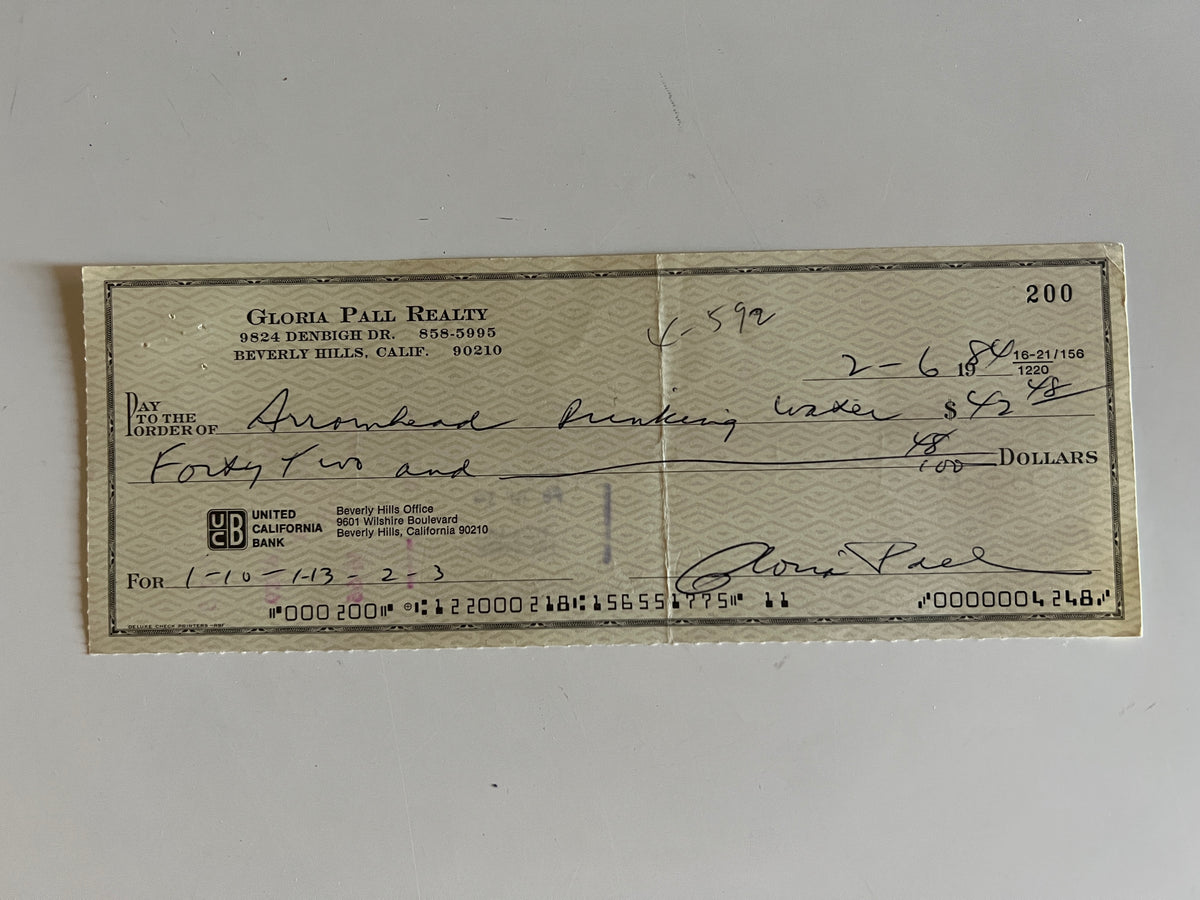 200
GLORIA PALL REALTY
9824 DENBIGH DR. 858-5995
BEVERLY HILLS, CALIF. 90210
4-592
2-6 1984 16-21/156
1220
PAY TO THE ORDER OF Arrowhead Drinking Water $42 48
Forty Two and 48/100 DOLLARS
UCB UNITED CALIFORNIA BANK
Beverly Hills Office
9601 Wilshire Boulevard
Beverly Hills, California 90210
FOR 1-10-1-13-2-3 Gloria Pall
⑈000200⑈ ⑆122000218⑆156551775⑈ 11 ⑇0000004248⑇
DELUXE CHECK PRINTERS